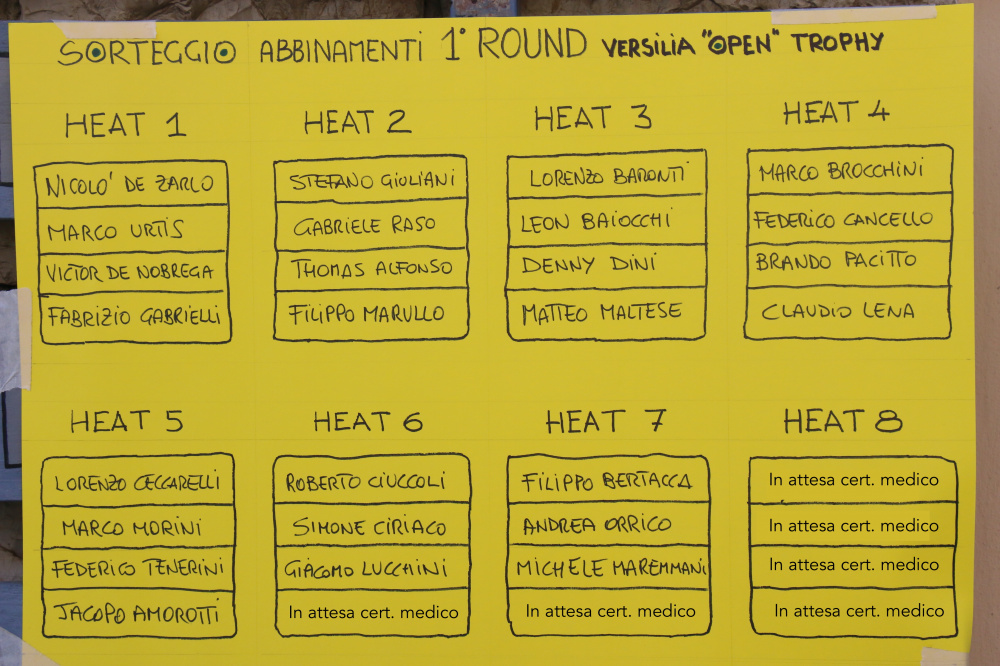 SORTEGGIO ABBINAMENTI 1° ROUND VERSILIA "OPEN" TROPHY
HEAT 1
NICOLO' DE ZARLO
MARCO URTIS
VICTOR DE NOBREGA
FABRIZIO GABRIELLI
HEAT 2
STEFANO GIULIANI
GABRIELE RASO
THOMAS ALFONSO
FILIPPO MARULLO
HEAT 3
LORENZO BARONTI
LEON BAIOCCHI
DENNY DINI
MATTEO MALTESE
HEAT 4
MARCO BROCCHINI
FEDERICO CANCELLO
BRANDO PACITTO
CLAUDIO LENA
HEAT 5
LORENZO CECCARELLI
MARCO MORINI
FEDERICO TENERINI
JACOPO AMOROTTI
HEAT 6
ROBERTO CIUCCOLI
SIMONE CIRIACO
GIACOMO LUCCHINI
In attesa cert. medico
HEAT 7
FILIPPO BERTACCA
ANDREA ORRICO
MICHELE MAREMMANI
In attesa cert. medico
HEAT 8
In attesa cert. medico
In attesa cert. medico
In attesa cert. medico
In attesa cert. medico